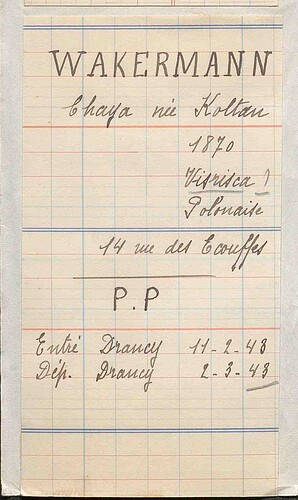 WAKERMANN
Chaya née Koltan
1870
Visrisca ?
Polonaise
14 rue des Ecouffes
P.P
Entré Drancy 11-2-43
Dép. Drancy 2-3-43